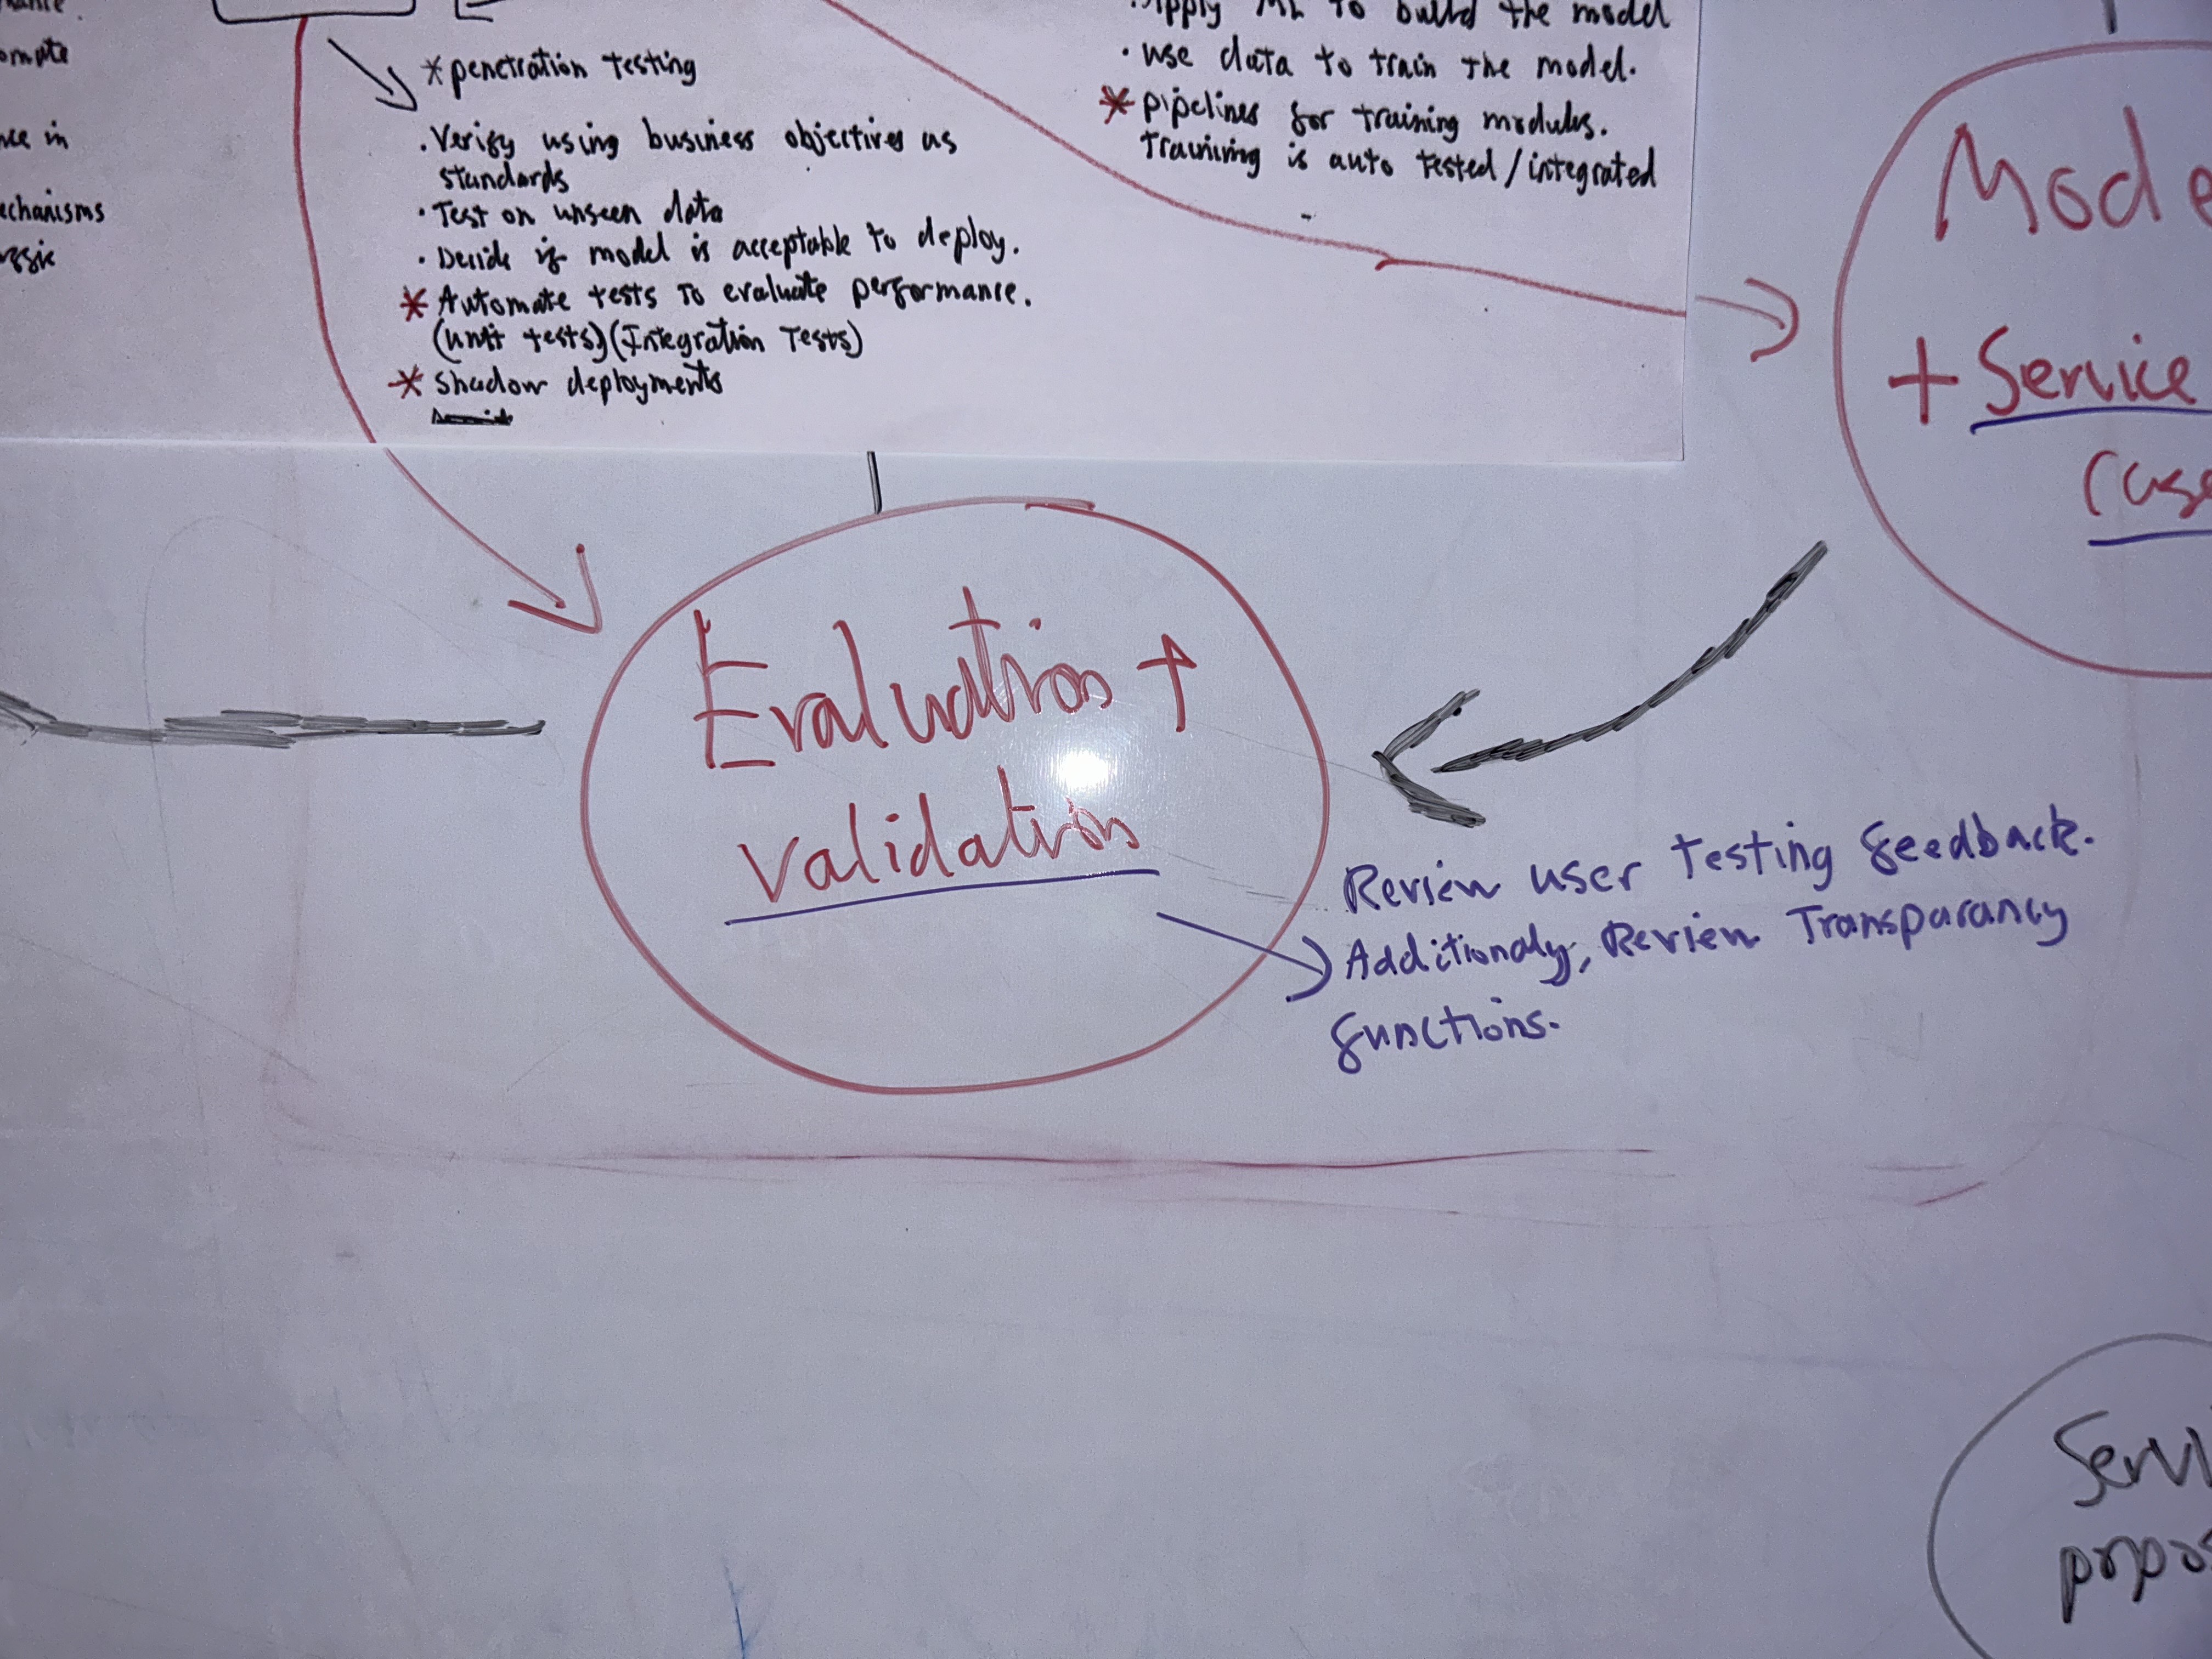 ompte
nce in
echanisms
* penetration testing
. Verify using business objectives as
standards
· Test on unseen data
· Decide if model is acceptable to deploy.
* Automate tests to evaluate performance.
(unit tests) (Integration Tests)
* shadow deployments
· Apply ML to build the model
· use data to train the model.
* pipelines for training modules.
Training is auto tested / integrated
Mode
+ Service
(use
Evaluation +
validation
Review user testing feedback.
Additionaly, Review Transparancy
functions.
Servi
propos